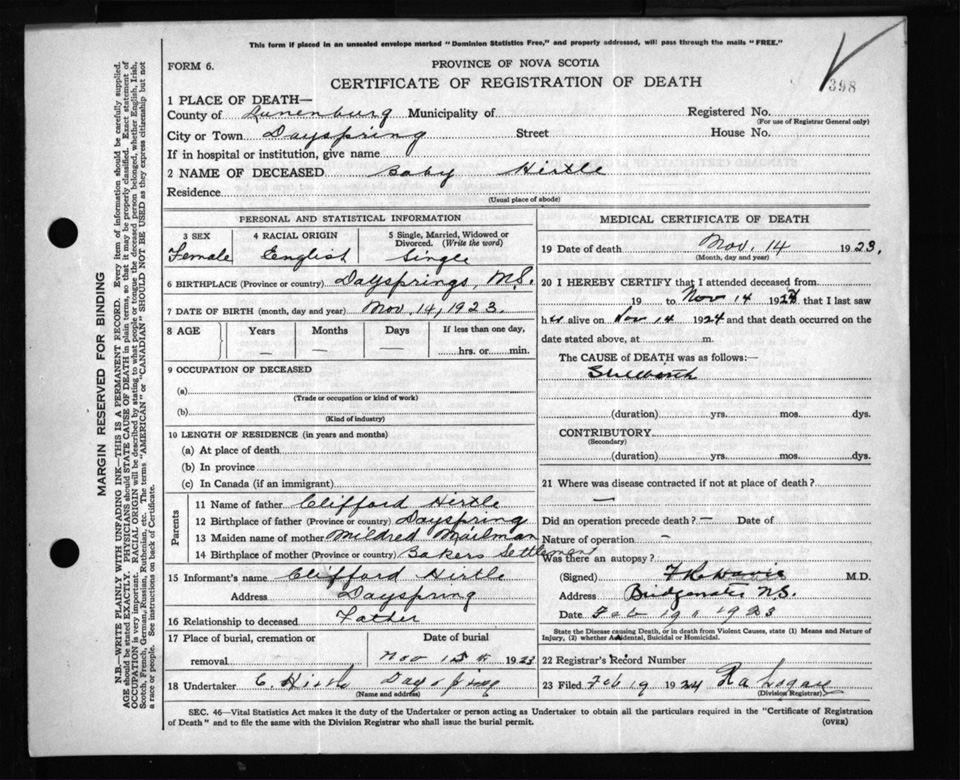 This form if placed in an unsealed envelope marked "Dominion Statistics Free," and properly addressed, will pass through the mails "FREE."
FORM 6.
PROVINCE OF NOVA SCOTIA
CERTIFICATE OF REGISTRATION OF DEATH
398
1 PLACE OF DEATH—
County of Lunenburg Municipality of Registered No.
(For use of Registrar General only)
City or Town Dayspring Street House No.
If in hospital or institution, give name
2 NAME OF DECEASED Baby Hirtle
Residence
(Usual place of abode)
PERSONAL AND STATISTICAL INFORMATION
3 SEX 4 RACIAL ORIGIN 5 Single, Married, Widowed or Divorced. (Write the word)
Female English Single
6 BIRTHPLACE (Province or country) Dayspring, N.S.
7 DATE OF BIRTH (month, day and year) Nov. 14, 1923.
8 AGE Years Months Days If less than one day,
— — — hrs. or min.
9 OCCUPATION OF DECEASED
(a)
(Trade or occupation or kind of work)
(b)
(Kind of industry)
10 LENGTH OF RESIDENCE (in years and months)
(a) At place of death
(b) In province
(c) In Canada (if an immigrant)
Parents
11 Name of father Clifford Hirtle
12 Birthplace of father (Province or country) Dayspring
13 Maiden name of mother Mildred Mailman
14 Birthplace of mother (Province or country) Bakers Settlement
15 Informant's name Clifford Hirtle
Address Dayspring
16 Relationship to deceased Father
17 Place of burial, cremation or removal Date of burial
Nov 15th 1923
18 Undertaker C. Hirtle Dayspring
(Name and address)
MEDICAL CERTIFICATE OF DEATH
19 Date of death Nov. 14 1923,
(Month, day and year)
20 I HEREBY CERTIFY that I attended deceased from
19 to Nov 14 192 that I last saw
h alive on Nov 14 1924 and that death occurred on the
date stated above, at m.
The CAUSE OF DEATH was as follows:—
Stillbirth
(duration) yrs. mos. dys.
CONTRIBUTORY
(Secondary)
(duration) yrs. mos. dys.
21 Where was disease contracted if not at place of death?
—
Did an operation precede death? — Date of
Nature of operation —
Was there an autopsy?
(Signed) Davis M.D.
Address Bridgewater N.S.
Date Feb 19 1923
State the Disease causing Death, or in death from Violent Causes, state (1) Means and Nature of Injury, (2) whether Accidental, Suicidal or Homicidal.
22 Registrar's Record Number
23 Filed Feb 19 1924
(Division Registrar)
SEC. 46—Vital Statistics Act makes it the duty of the Undertaker or person acting as Undertaker to obtain all the particulars required in the "Certificate of Registration
of Death" and to file the same with the Division Registrar who shall issue the burial permit.
(OVER)
MARGIN RESERVED FOR BINDING
N.B.—WRITE PLAINLY WITH UNFADING INK—THIS IS A PERMANENT RECORD. Every item of information should be carefully supplied.
AGE should be stated EXACTLY. PHYSICIANS should STATE CAUSE OF DEATH in plain terms, so that it may be properly classified. Exact statement of
OCCUPATION is very important. RACIAL ORIGIN will be described by stating to what people or tongue the deceased person belonged, whether English, Irish,
Scotch, French, German, Russian, Ruthenian, etc. The terms "AMERICAN" or "CANADIAN" SHOULD NOT BE USED as they express citizenship but not
a race or people. See instructions on back of Certificate.